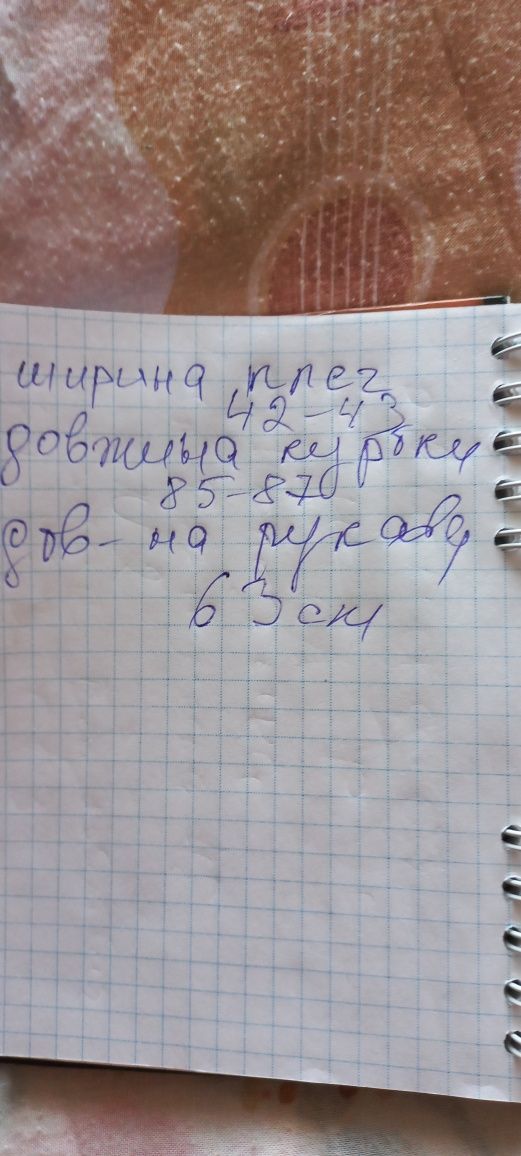 ширина плеч
42-43
довжина куртки
85-87
дов-на рукава
63 см